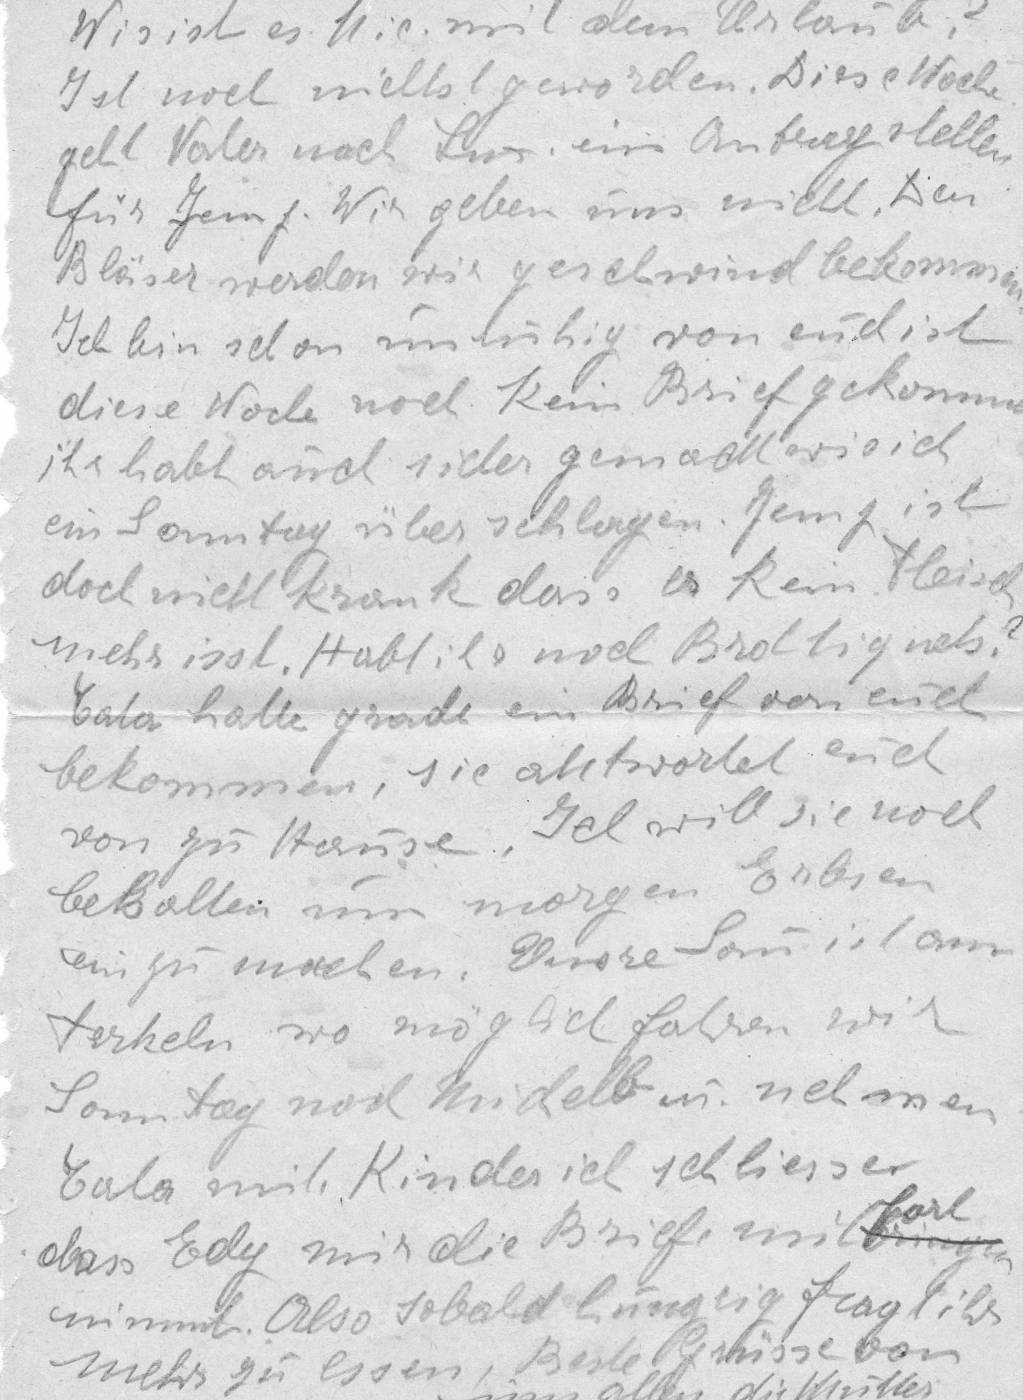 Wie ist es Nic. mit dem Urlaub?
Ist noch nichts geworden. Diese Woche
geht Vater nach Lux. ein Antrag stellen
für Jemp. Wir geben uns nicht. Den
Bläser werden wir geschwind bekommen.
Ich bin schon unruhig von euch ist
diese Woche noch kein Brief gekommen
ihr habt auch sicher gemacht wie ich
ein Sonntag über schlagen. Jemp ist
doch nicht krank dass er kein Fleisch
mehr isst. Habt ihr noch Brottiquets?
hatte grade ein Brief von euch
bekommen, sie antwortet euch
von zu Hause. Ich will sie noch
behalten um morgen Erbsen
ein zu machen. Unsre Sau ist am
ferkeln wo möglich fahren wir
Sonntag nach u. nehmen
mit. Kinder ich schliesse
dass Edy mir die Briefe mit fort
nimmt. Also sobald hungrig fragt ihr
mehr zu essen, Beste Grüsse von
uns allen die Mutter